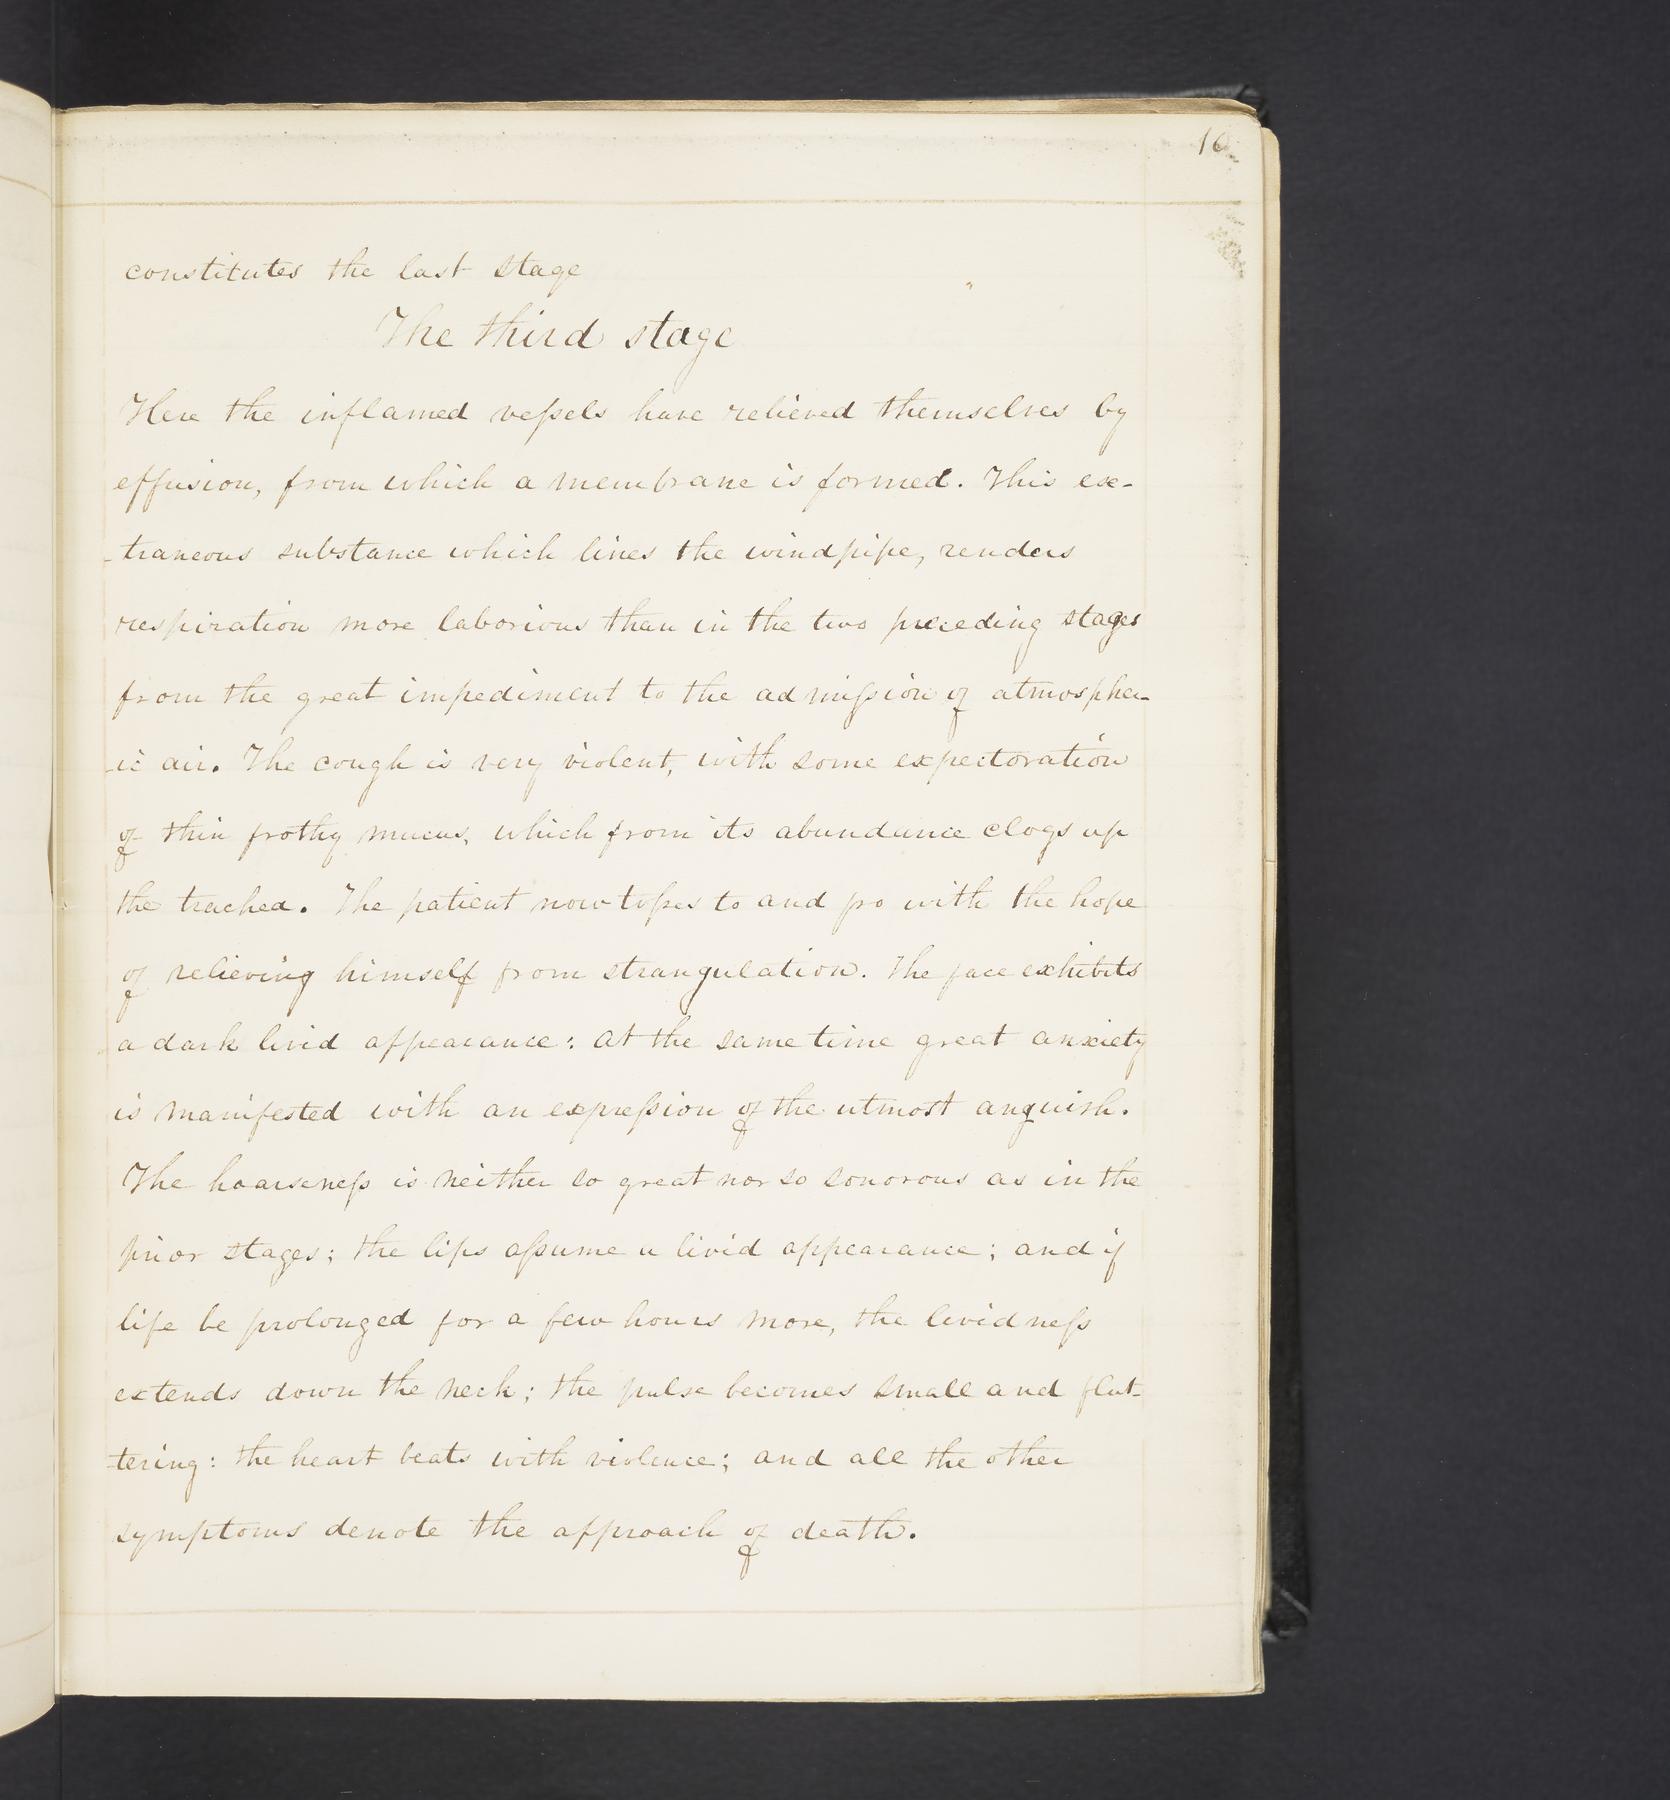 16
constitutes the last stage
The third stage
Here the inflamed veſsels have relieved themselves by
effusion, from which a membrane is formed. This ex-
-traneous substance which lines the windpipe, renders
respiration more laborious than in the two preceding stages
from the great impediment to the admiſsion of atmospher-
-ic air. The cough is very violent, with some expectoration
of thin frothy mucus, which from its abundance clogs up
the trachea. The patient now toſses to and fro with the hope
of relieving himself from strangulation. The face exhibits
a dark livid appearance: at the same time great anxiety
is manifested with an expreſsion of the utmost anguish.
The hoarseneſs is neither so great nor so sonorous as in the
prior stages; the lips aſsume a livid appearance; and if
life be prolonged for a few hours more, the lividneſs
extends down the neck; the pulse becomes small and flut-
-tering: the heart beats with violence; and all the other
symptoms denote the approach of death.